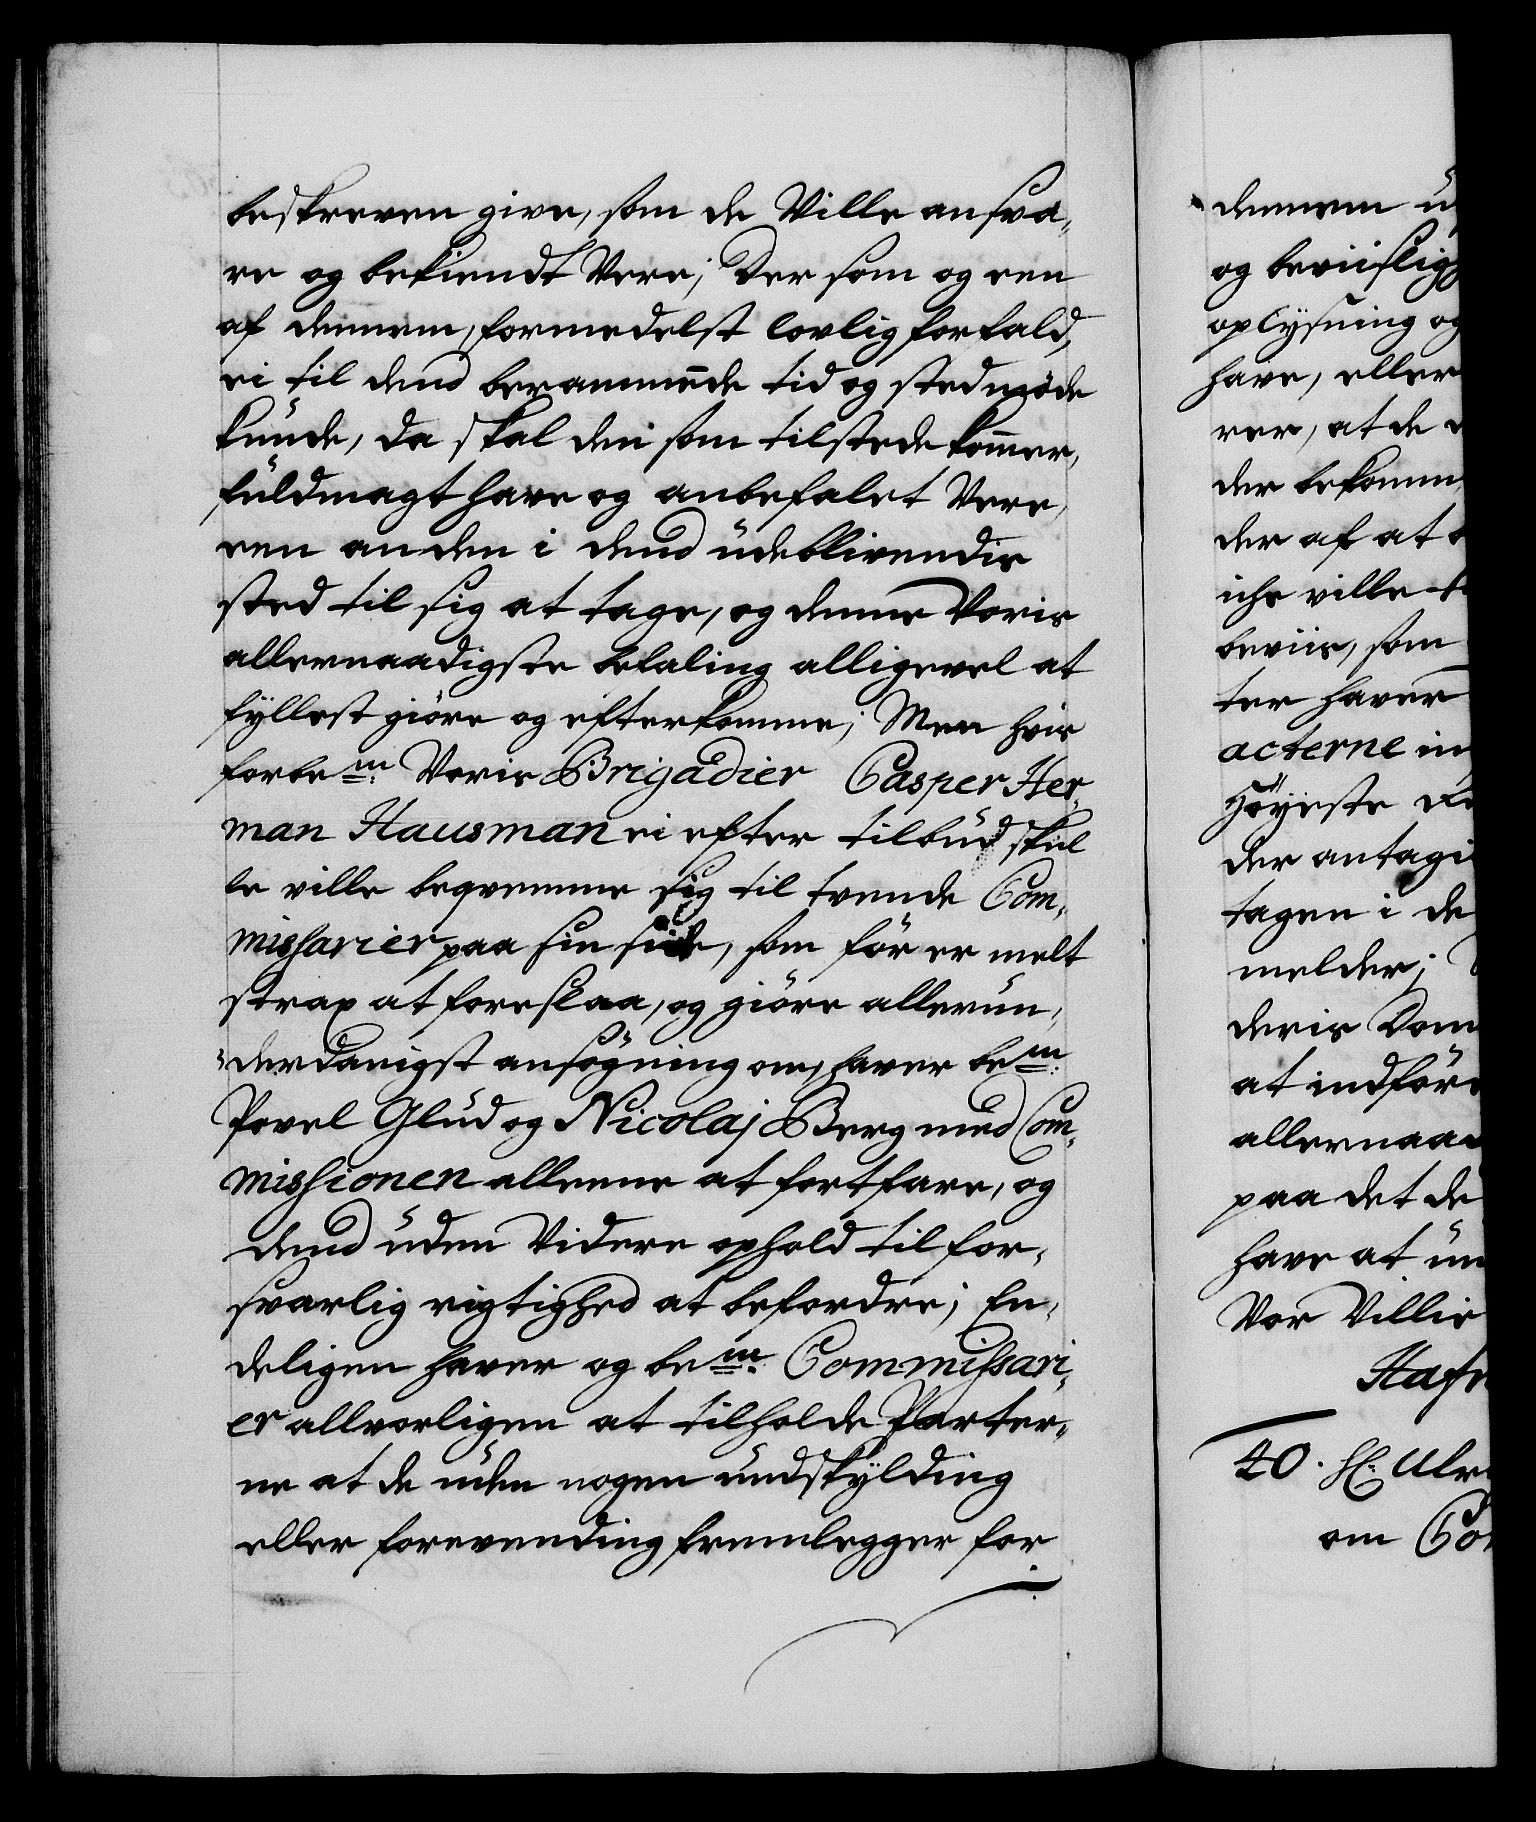 beskreven give, som de Ville ansva,,
re og bekiendt Vere; Der som og een
af dennem, formedelst lovlig forfald,
ei til dend berammede tid og sted møde
kunde, da skal den som tilstede kommer,
fuldmagt have og anbefalet Vere,
een anden i dend udeblivendis
sted til sig at tage, og denne Voris
allernaadigste befaling alligevel at
fyllest giöre og efterkomme; Men hvis
forbe.m Voris Brigadier Casper Her,,
man Hausman ei efter tilbud skul
le ville beqvemme sig til tvende Com,,
missarier paa sin side, som för er melt
strax at foreslaa, og giöre allerun,,
derdanigst ansögning om, haver be.m
Povel Glud og Nicolaj Berg med Com,,
missionen alleene at fortfare, og
dend uden Videre ophold til for,,
svarlig rigtighed at befordre; En,,
deligen haver og be.m Commissari,,
er allvorligen at tilholde Parter,,
ne at de uden nogen undskylding
eller forevending fremlegger for
dennem u
og beviislig
oplysning og
have, eller
rer, at de
der bekomm
der af at
ichr ville
beviis, som
ter haver
acterne in
Höyeste
der antagi
tagen i de
melder;
deris Dom
at indföre
allernaa
paa det de
have at un
Vor Villie
Hafn
40. H. Ulr
om Co